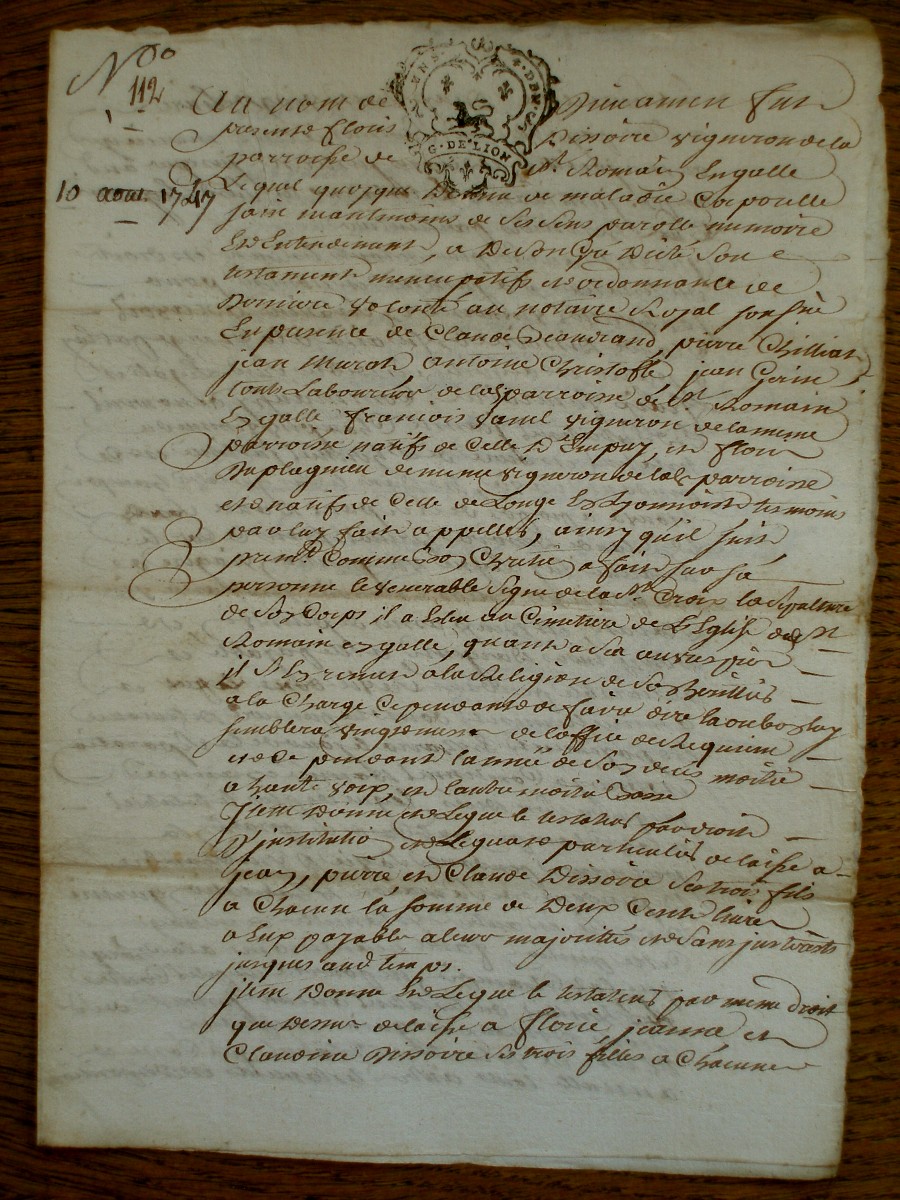 N.o
112
10 aout 1747
MOYENS
4. DEN.
G. DE LION
Au nom de Dieu amen fut
presente floris Dissoire vigneron de la
parroisse de st. Romain Engalle
Lequel quoyque detenu de maladie Corporelle
sain neantmoins de ses sens parolle memoire
Et Entendement, a de son gré dicté son
testament nuncupatifs et ordonnance de
Derniere volonté au notaire Royal soussné
En presence de Claude Beaudrand, pierre Chillias
jean Murat antoine Christofle jean Gerin
touts Laboureurs de lad parroisse de st Romain
En galle francois vigneron de la meme
parroisse natifs de Celle D'Empuy, et fleury
Duplagnieu de meme vigneron de lad parroisse
et natifs de Celle de Longe En Lyonnois temoins
par luy fait appelles, ainsy qu'il suit
premt Comme bon Chretien a fait sur sa
personne le venerable signe de la ste Croix la sepulture
de son Corps il a Eslu au Cimetiere de L'Eglise dud st
Romain en galle, quant a
il s'En remet a la Religion de son heritier
a la Charge Cependant de faire dire la ou bon luy
semblera vingt messes de L'office de Requiem
et ce pendant l'année de son deces moitié
a haute voix, et l'autre moitié basse
Item Donne et Legue le testateur par droit
D'institution et Legat particulier delaisse a
jean, pierre et Claude Dissoire ses trois fils
a Chacun la somme de Deux Cents livres
a Eux payable a leur majorités et sans interets
jusques aud temps.
Item Donne Et Legue le testateur par meme droit
que Dessus delaisse a florie jeanne et
Claudine Dissoire ses trois filles a Chacune